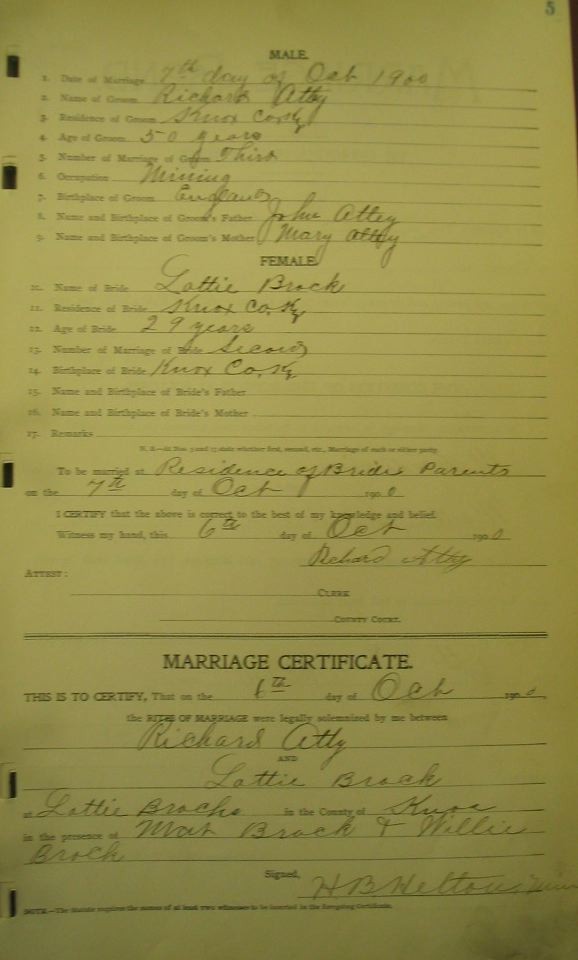 5
MALE.
1. Date of Marriage 7th day of Oct 1900
2. Name of Groom Richard Atty
3. Residence of Groom Knox Co, Ky
4. Age of Groom 50 years
5. Number of Marriage of Groom Third
6. Occupation Mining
7. Birthplace of Groom England
8. Name and Birthplace of Groom's Father John Attey
9. Name and Birthplace of Groom's Mother Mary Attey
FEMALE.
10. Name of Bride Lottie Brock
11. Residence of Bride Knox Co, Ky
12. Age of Bride 29 years
13. Number of Marriage of Bride Second
14. Birthplace of Bride Knox Co, Ky
15. Name and Birthplace of Bride's Father
16. Name and Birthplace of Bride's Mother
17. Remarks
N. B.—At Nos. 5 and 13 state whether first, second, etc., Marriage of each or either party.
To be married at Residence of Brides Parents
on the 7th day of Oct 1900
I CERTIFY that the above is correct to the best of my knowledge and belief.
Witness my hand, this 6th day of Oct 1900
Richard Atty
ATTEST:
CLERK
COUNTY COURT.
MARRIAGE CERTIFICATE.
THIS IS TO CERTIFY, That on the 6th day of Oct 1900,
the RITES OF MARRIAGE were legally solemnized by me between
Richard Atty
AND
Lottie Brock
at Lottie Brocks in the County of Knox
in the presence of Mat Brock & Willie
Brock
Signed, H B Helton, Min
NOTE.—The Statute requires the names of at least two witnesses to be inserted in the foregoing Certificate.